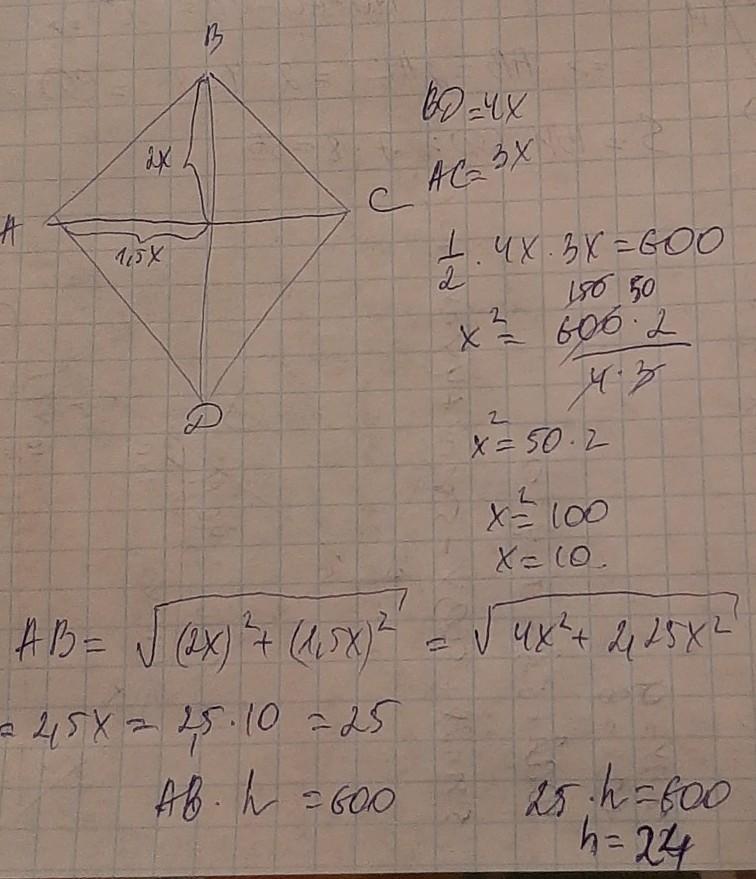 B
2x
A
C
1,5x
D
BD=4x
AC=3x
1/2 · 4x · 3x = 600
150 50
x² = 600 · 2 / 4 · 3
x² = 50 · 2
x² = 100
x = 10.
AB = √(2x)² + (1,5x)² = √4x² + 2,25x²
= 2,5x = 2,5 · 10 = 25
AB · h = 600
25 · h = 600
h = 24